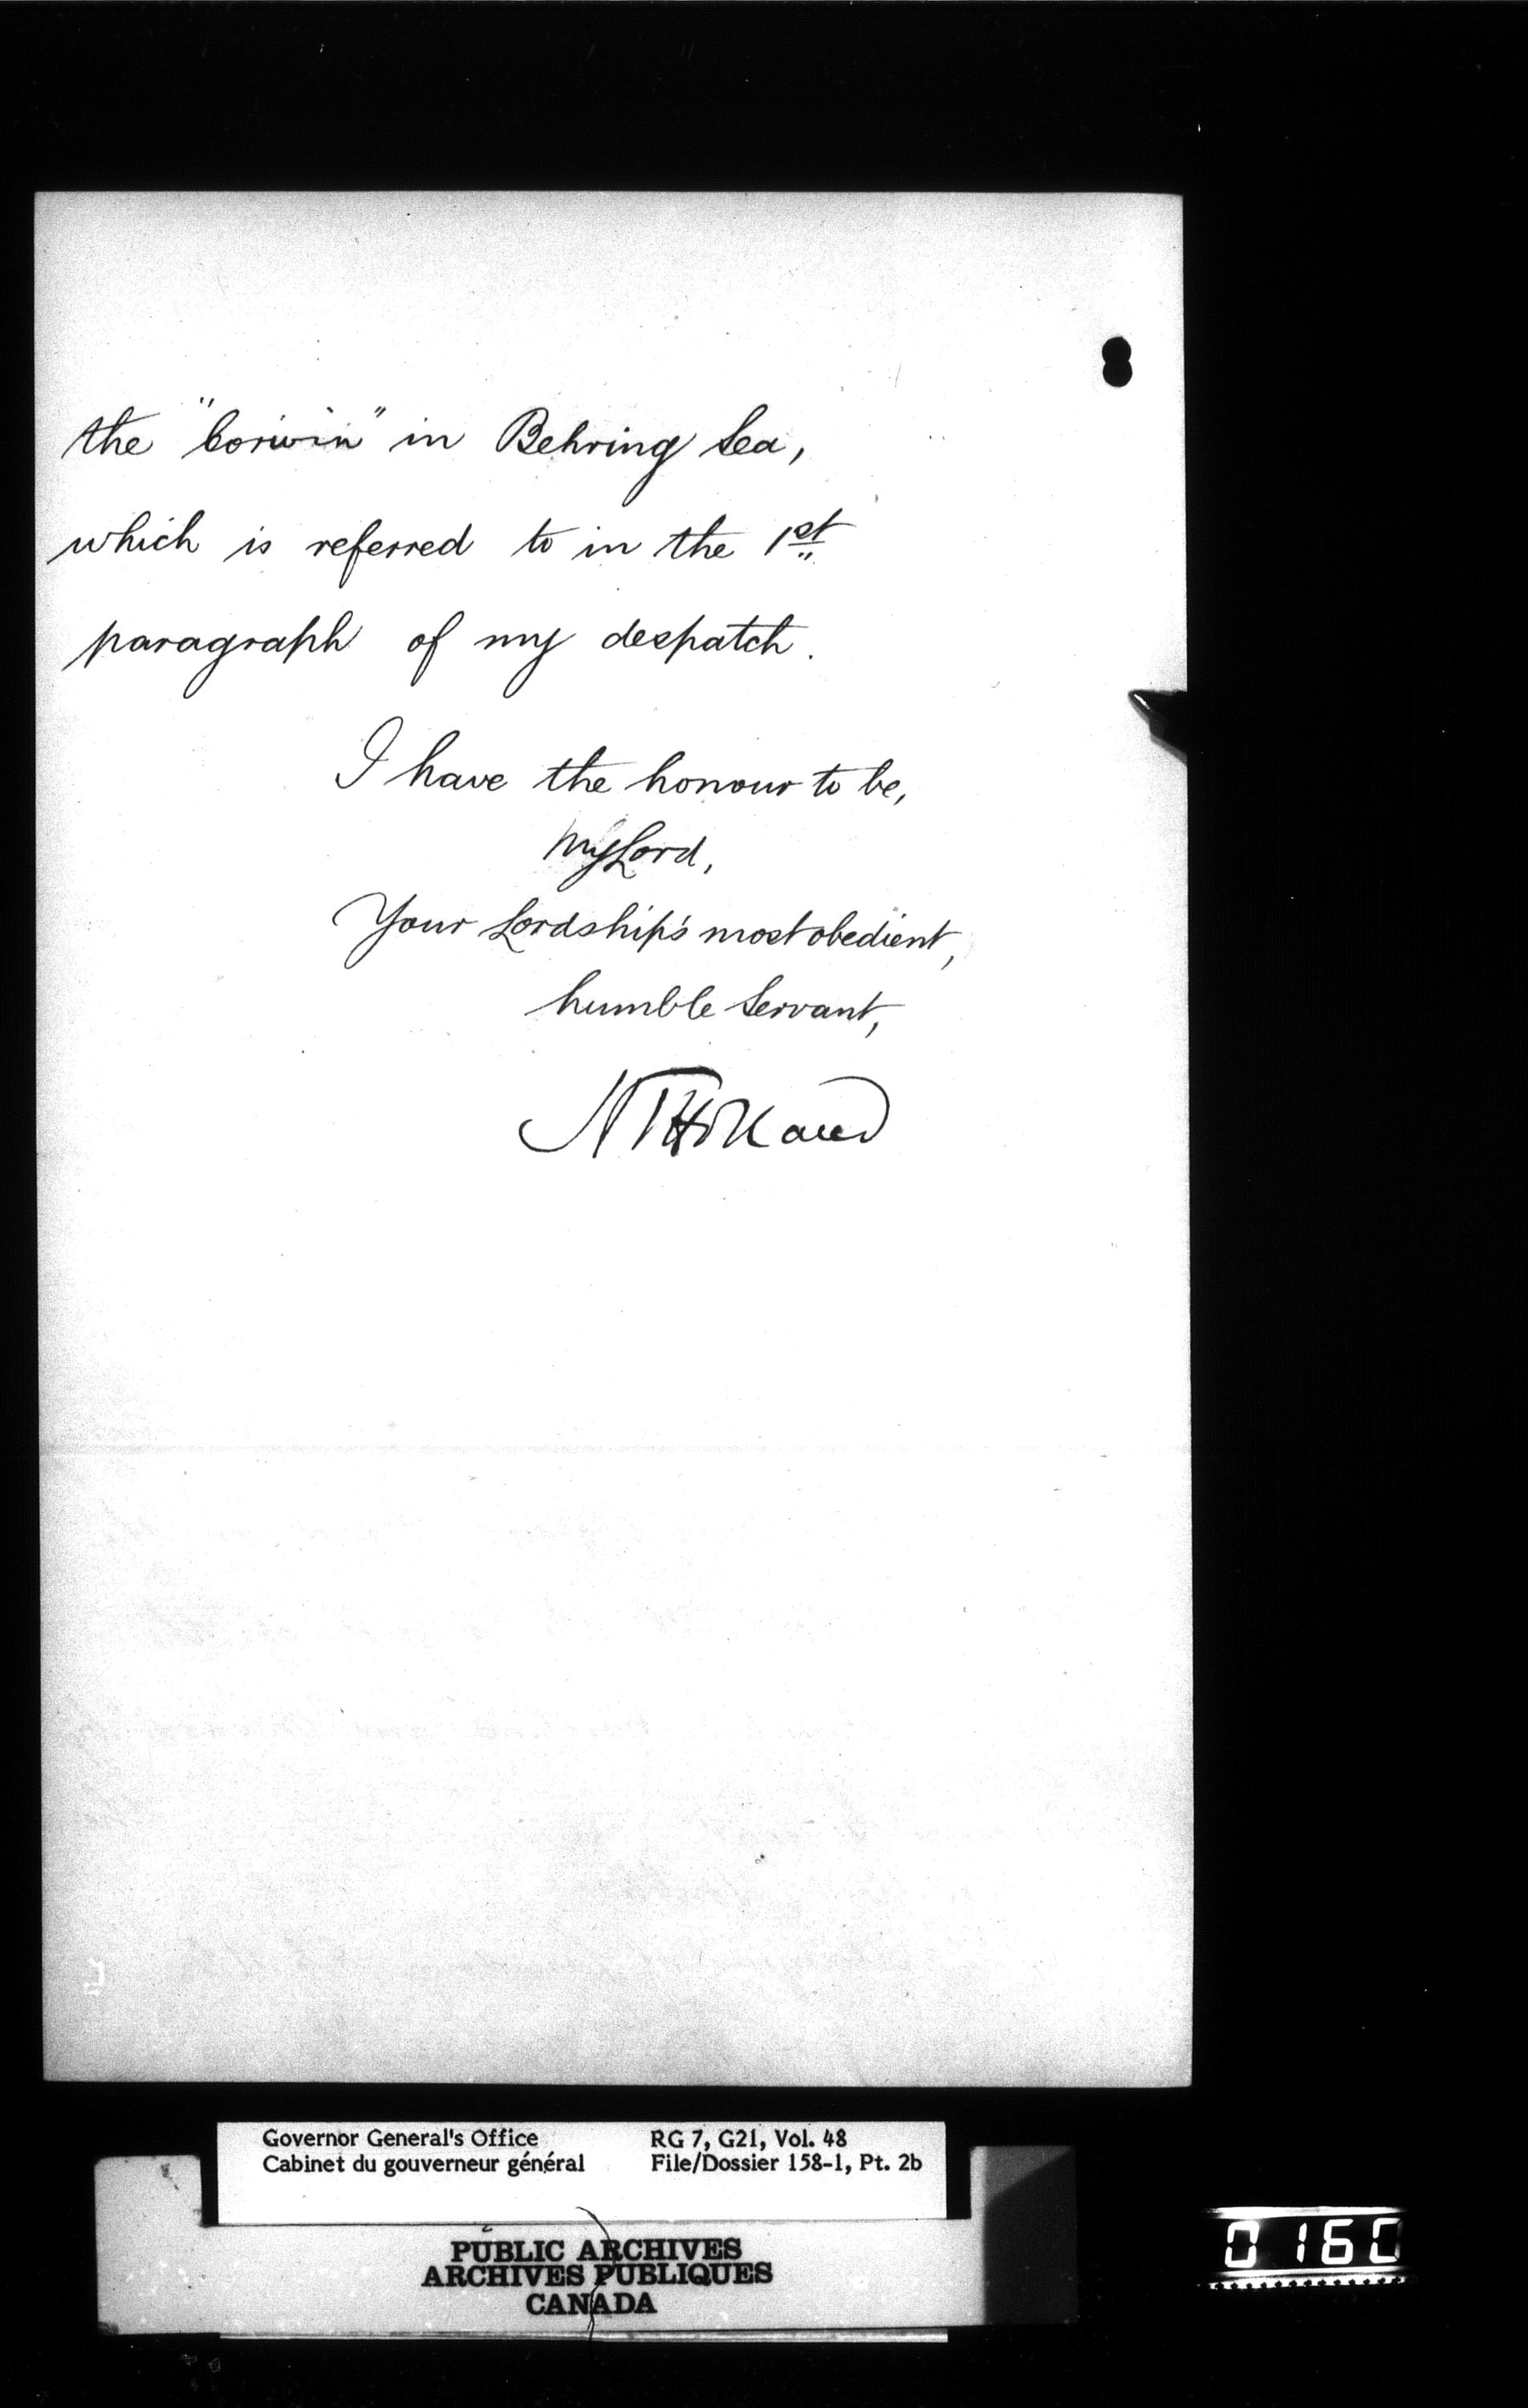 the "Corwin" in Behring Sea,
which is referred to in the 1st
paragraph of my despatch.
I have the honour to be,
My Lord,
Your Lordship's most obedient,
humble Servant,
Governor General's Office
Cabinet du gouverneur général
RG 7, G21, Vol. 48
File/Dossier 158-1, Pt. 2b
PUBLIC ARCHIVES
ARCHIVES PUBLIQUES
CANADA
0160